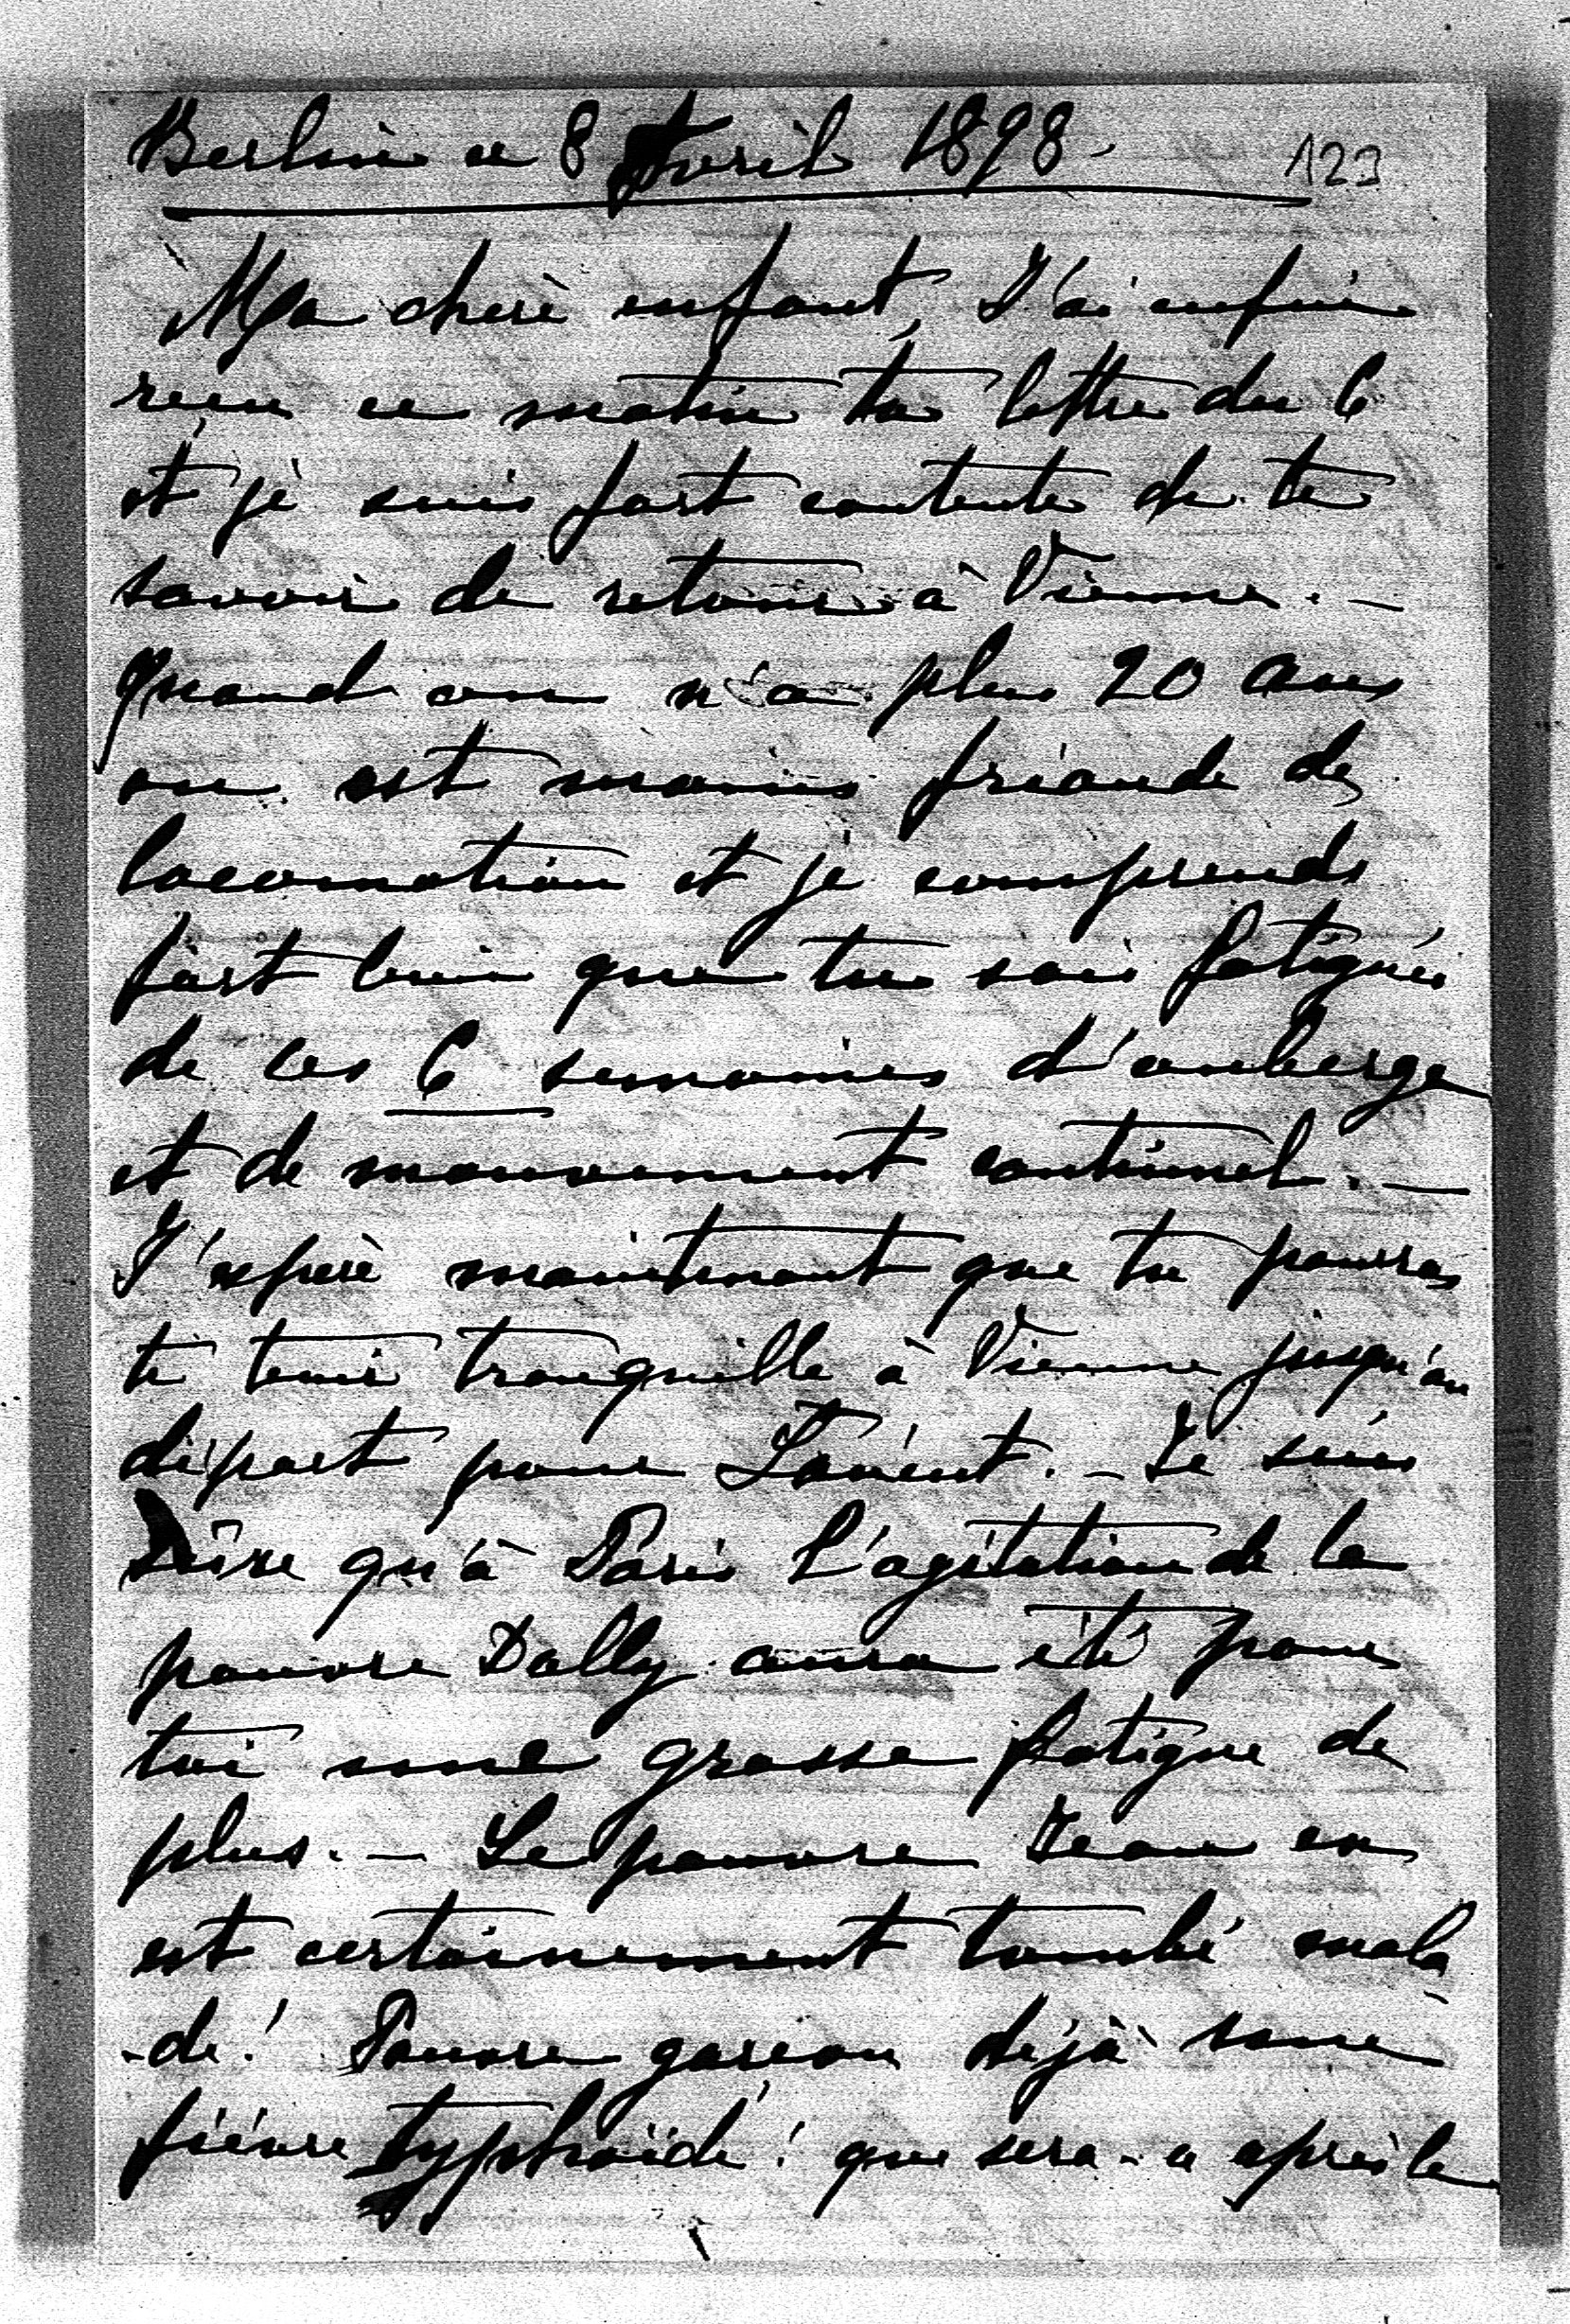 Berlin ce 8 Avril 1898.
123
Ma chère enfant, J'ai enfin
reçu ce matin ta lettre du 6
et je suis fort contente de te
savoir de retour à Vienne. —
Quand on n'a plus 20 ans
on est moins friande de
locomotion et je comprends
fort bien que tu sois fatiguée
de ces 6 semaines d'auberge
et de mouvement continuel. —
J'espère maintenant que tu pourras
te tenir tranquille à Vienne jusqu'au
départ pour Lancut. — Je suis
sûre qu'à Paris l'agitation de la
pauvre Dolly aura été pour
toi une grosse fatigue de
plus. — Le pauvre Jean en
est certainement tombé mala
-de! Pauvre garçon déjà une
fièvre typhoïde! que sera-ce après le